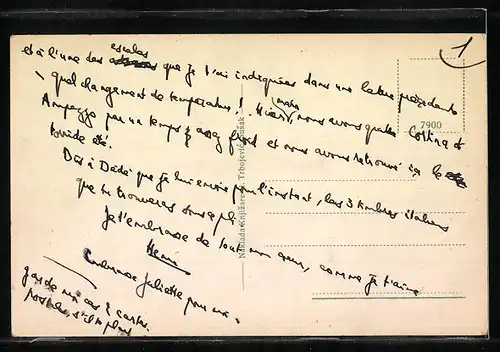 escales
et à l'une des que je t'ai indiquées dans une lettre précédente
quel changement de température ! Hier matin, nous avons quitté Cortina d'
Ampezzo par un temps assez froid et nous avons retrouvé ici le
torride été !
Dis à Dédé que je lui envoie pour l'instant, les 3 timbres italiens
que tu trouveras sous pli.
Je t'embrasse de tout mon cœur, comme je t'aime
Henri
Embrasse Juliette pour moi.
garde moi ces 2 cartes
s'il te plaît
1
7900
Naklada Knjižare Trbojević, Sušak